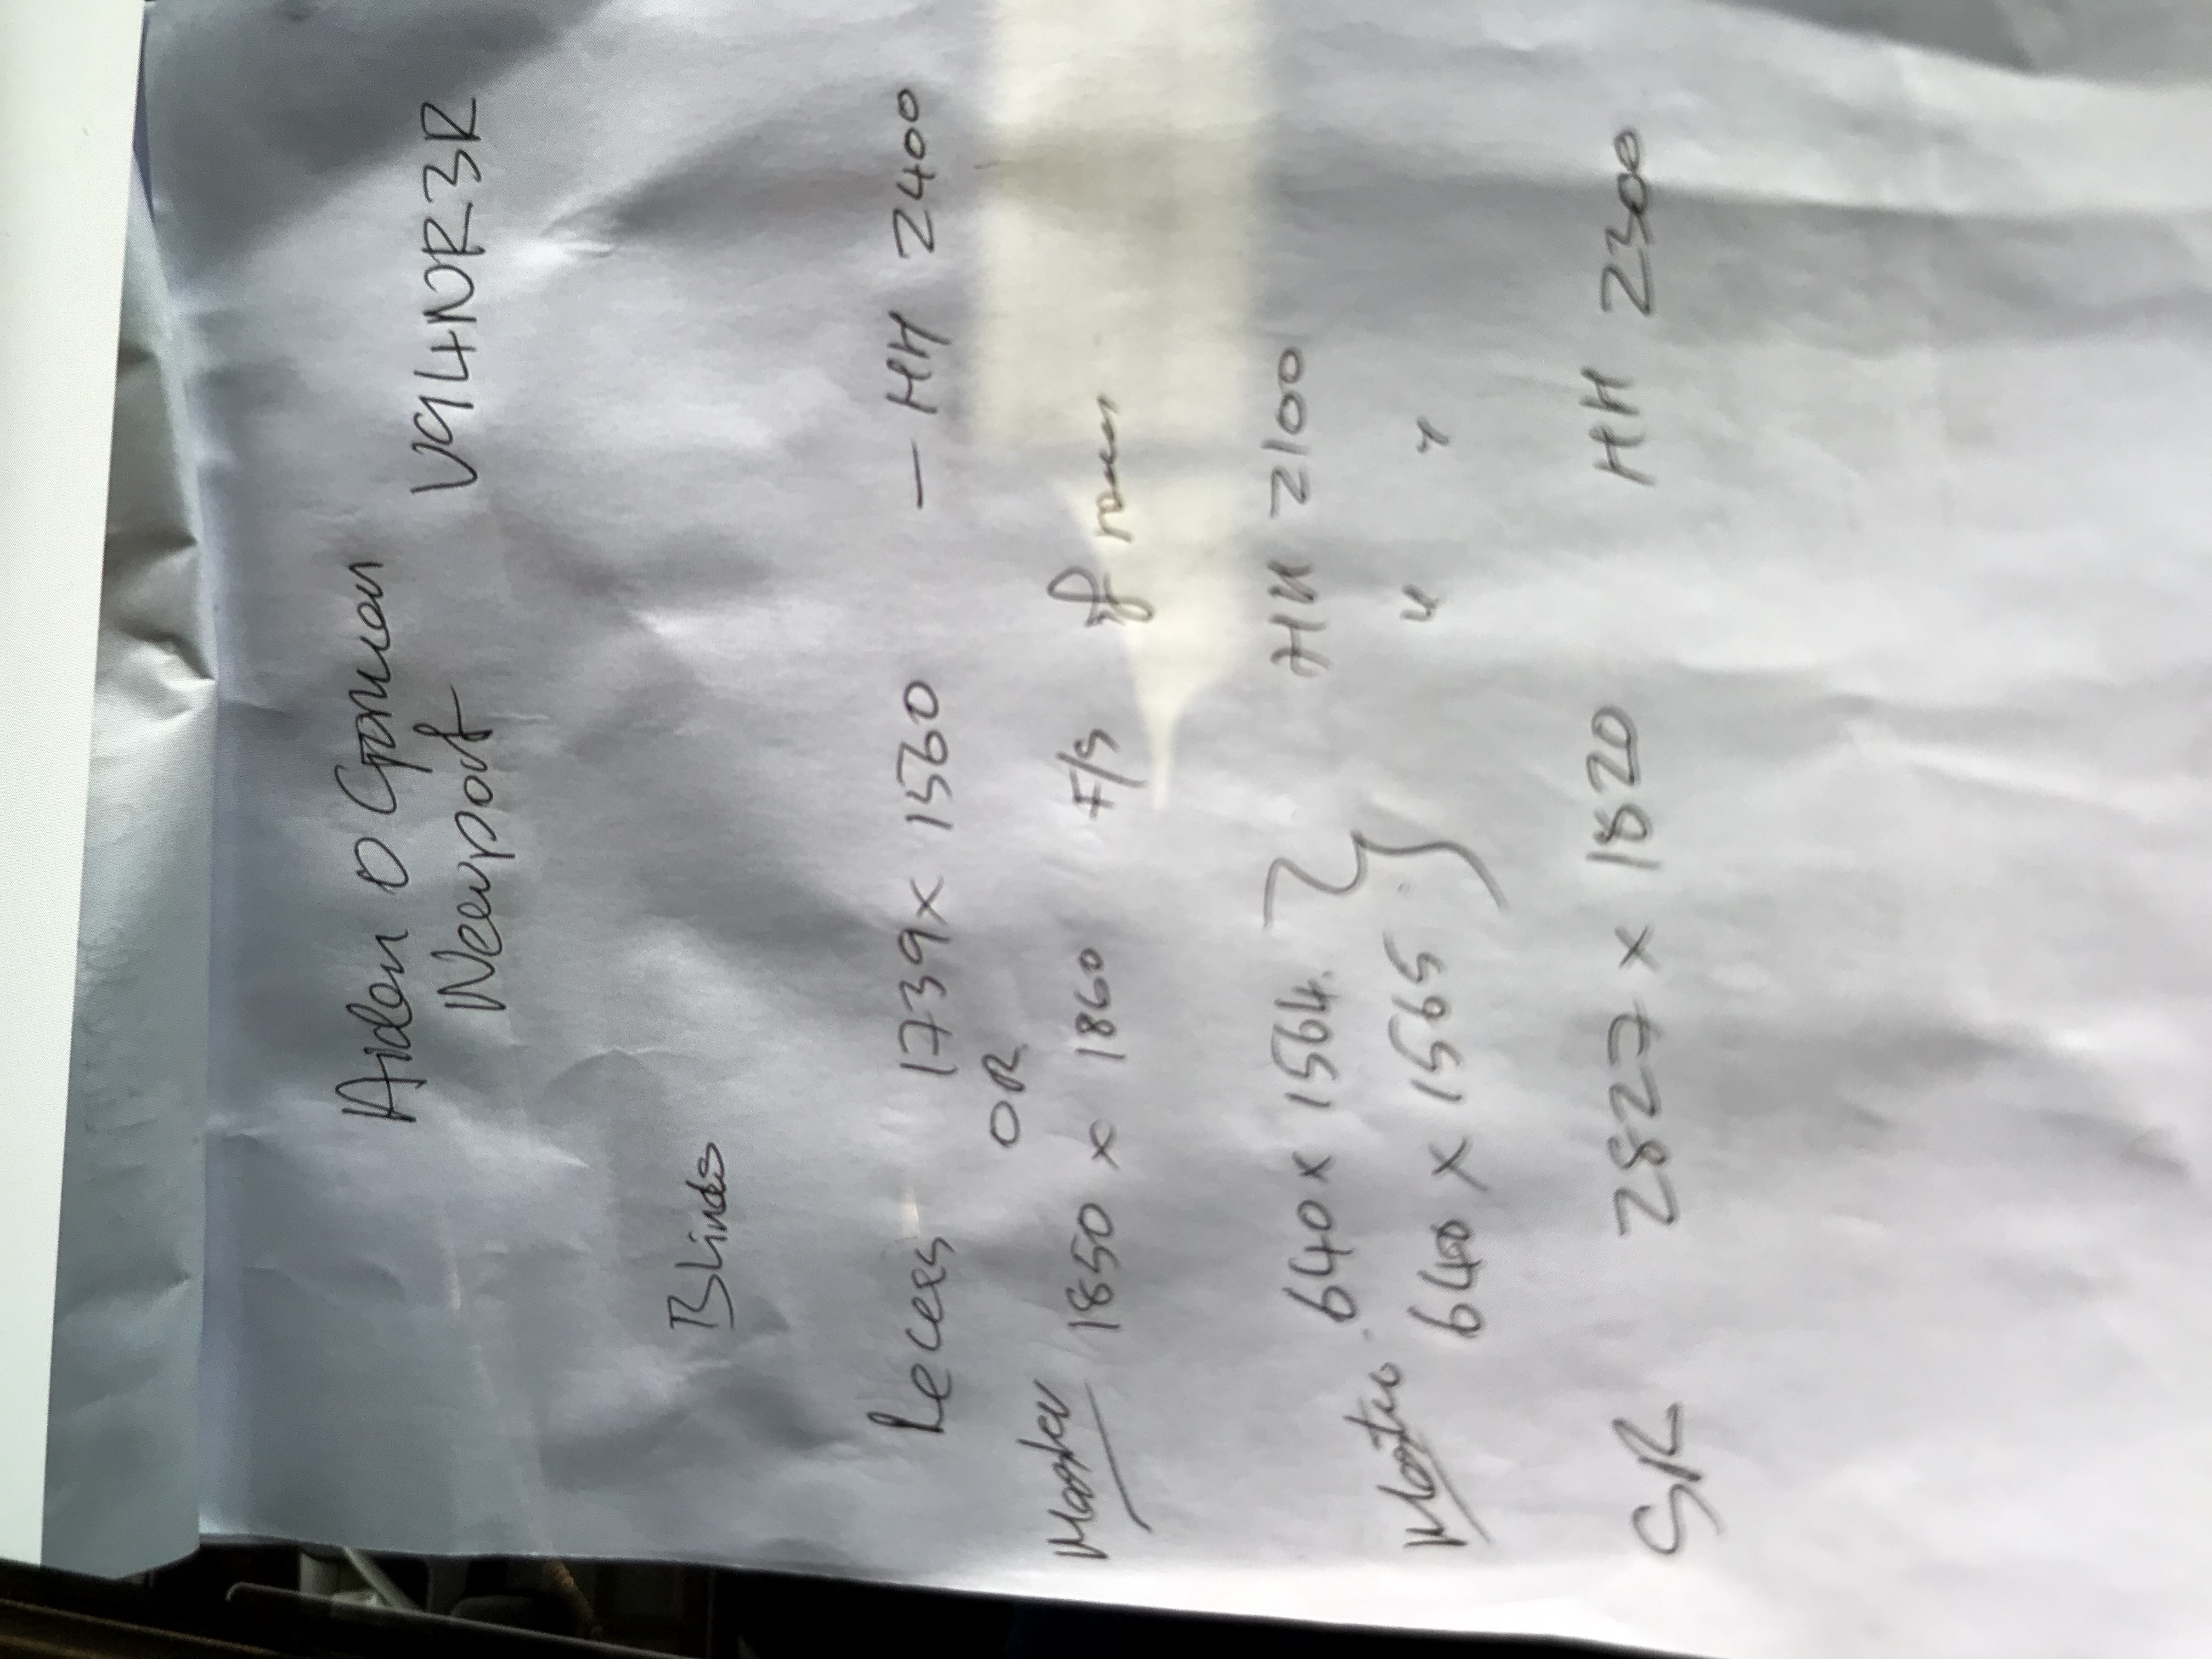 Aiden O Gorman
Newport V94N2R3R
Blinds
Recess 1739 x 1560 — HH 2400
OR
Master 1850 x 1860 F/S if room
640 x 1564 } HH 2100
Master 640 x 1565 } " "
SR 2827 x 1820 HH 2300